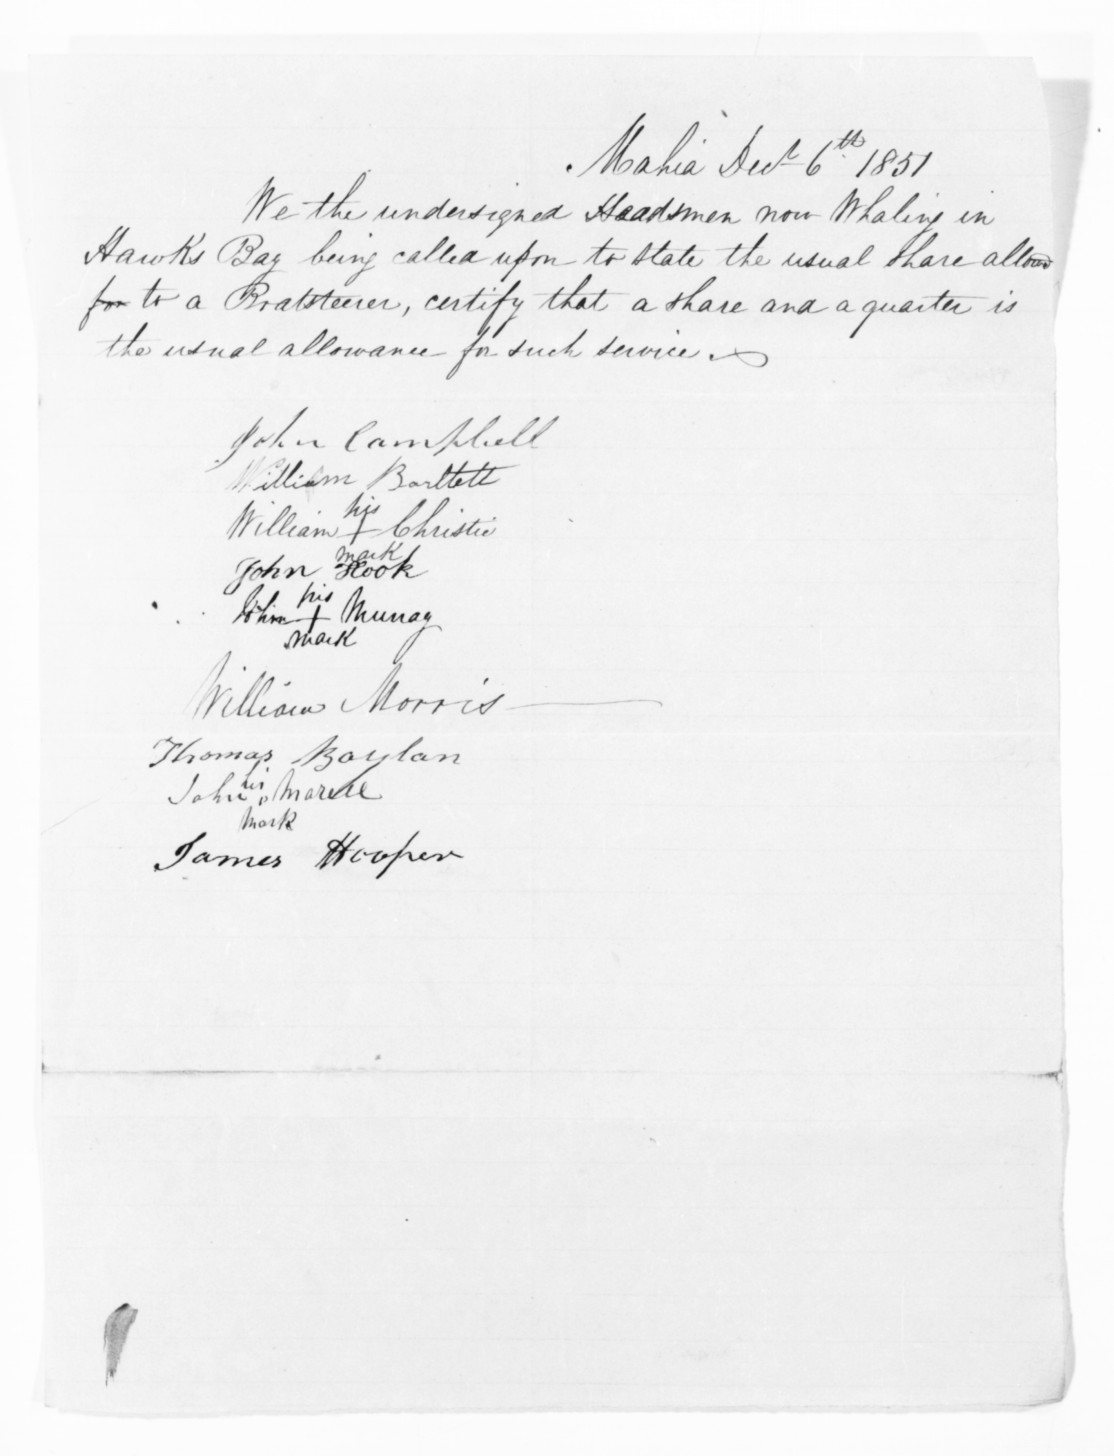 Mahia Decr 6th 1851
We the undersigned Headsmen now Whaling in
Hawks Bay being called upon to state the usual share allow
for to a Boatsteerer, certify that a share and a quarter is
the usual allowance for such service.
John Campbell
William Bartlett
his
William + Christie
mark
John Hook
his
John + Murray
mark
William Morris
Thomas Boylan
his
John o
mark
James Hooper